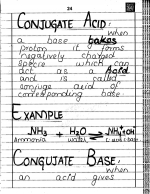 24
CONJUGATE ACID:
When
a base takes
proton it forms
negatively charged
specie which can
act as a Acid
and is called
conjugae acid of
corresponding base.
EXAMPLE
NH₃ + H₂O ⇌ NH₄⁺OH
Ammonia water
CONJUTATE BASE:
When
an acid gives